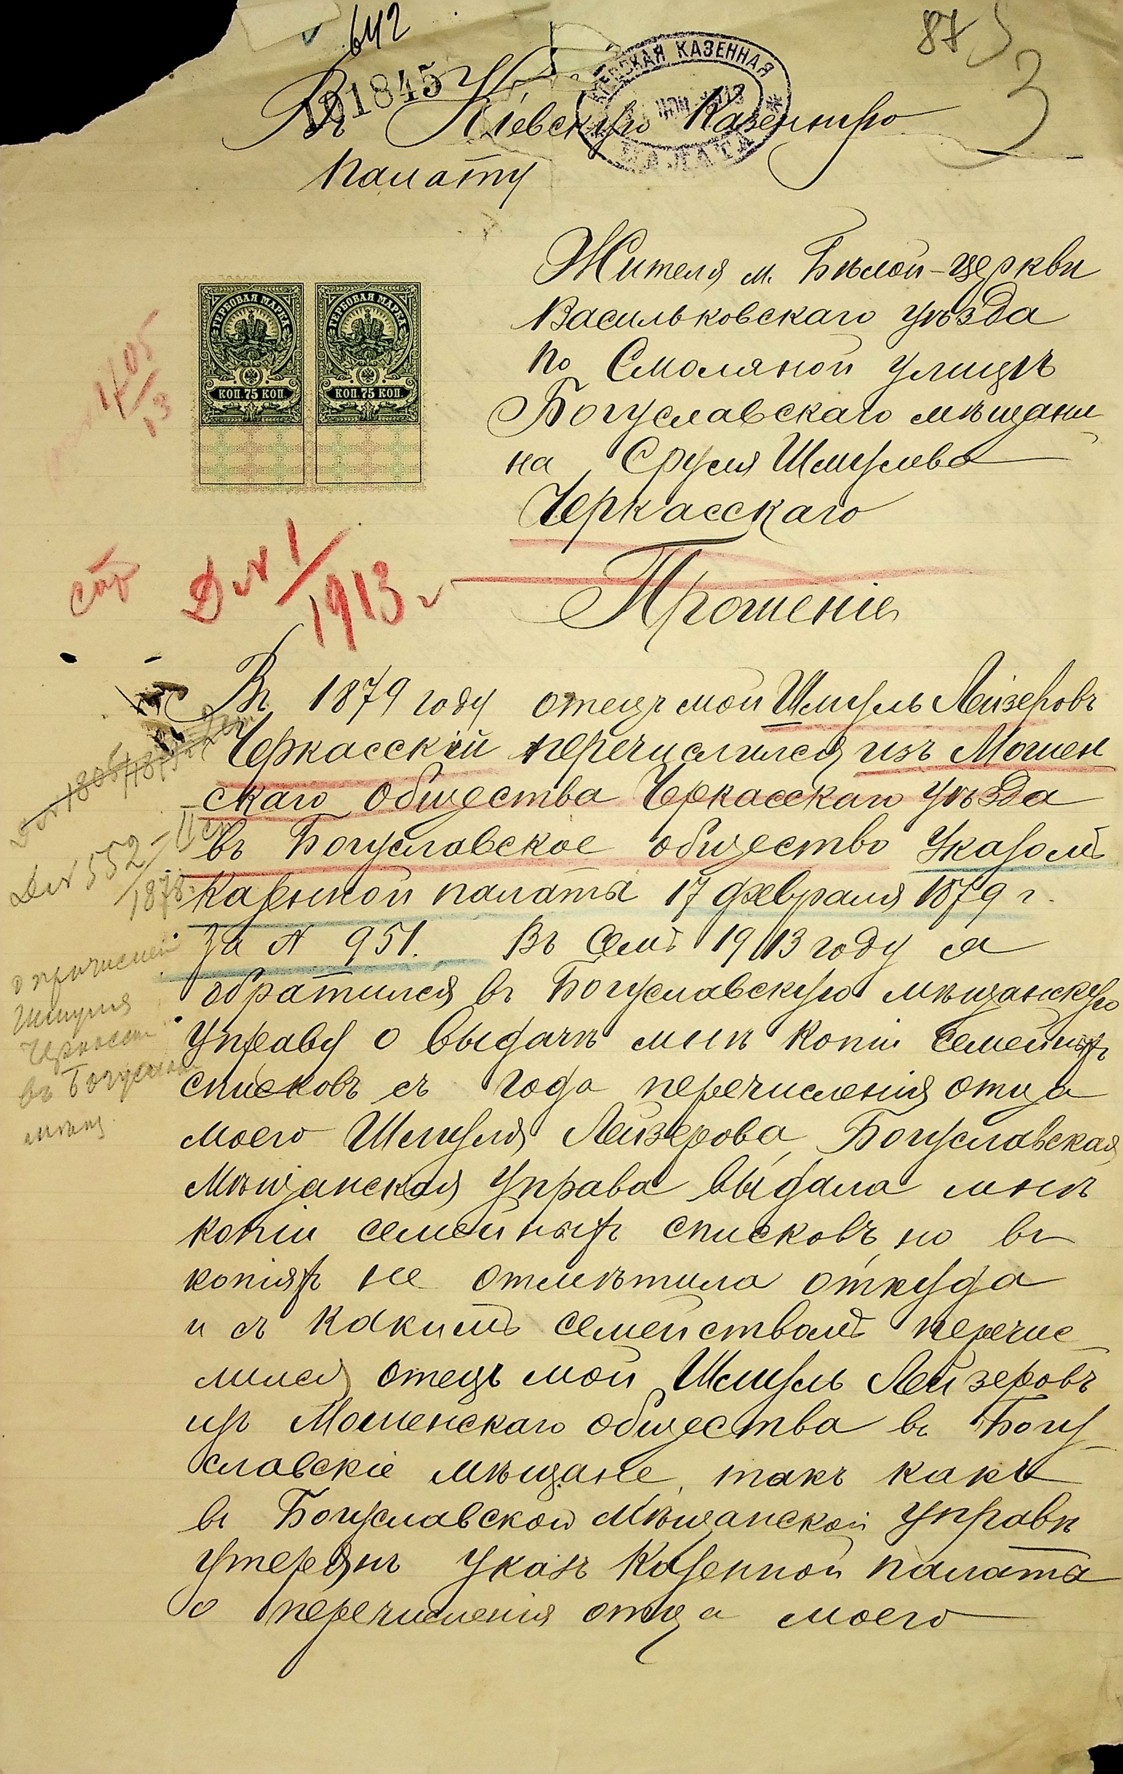 642
87
3
№ 1845
КІЕВСКАЯ КАЗЕННАЯ
ПАЛАТА
Въ Кіевскую Казенную
Палату
Жителя м. Бѣлой-церкви
Васильковскаго уѣзда
по Смоляной улицѣ
Богуславскаго мѣщани-
на Сруля Шмулева
Черкасскаго
ГЕРБОВАЯ МАРКА
КОП. 75 КОП.
ГЕРБОВАЯ МАРКА
КОП. 75 КОП.
1705/13
стр
Д № 1/1913 г
Прошеніе
Въ 1879 году отецъ мой Шмуль Лейзеровъ
Черкасскій перечислился изъ Мошен
скаго общества Черкасскаго уѣзда
въ Богуславское общество Указомъ
Казенной палаты 17 февраля 1879 г.
за № 951. Въ семъ 1913 году я
обратился въ Богуславскую мѣщанскую
Управу о выдачѣ мнѣ копіи семейныхъ
списковъ съ года перечисленія отца
моего Шмуля Лейзерова, Богуславская
Мѣщанская Управа выдала мнѣ
копіи семейныхъ списковъ, но въ
копіяхъ не отмѣтила откуда
и съ какимъ семействомъ перечис-
лился отецъ мой Шмуль Лейзеровъ
изъ Мошенскаго общества въ Богу-
славскіе мѣщане, такъ какъ
въ Богуславской Мѣщанской Управѣ
утерянъ указъ Казенной палаты
о перечисленія отца моего
Д № 552/1878
о причислен
Шмуля
Черкасск
въ Богуслав
мѣщ.